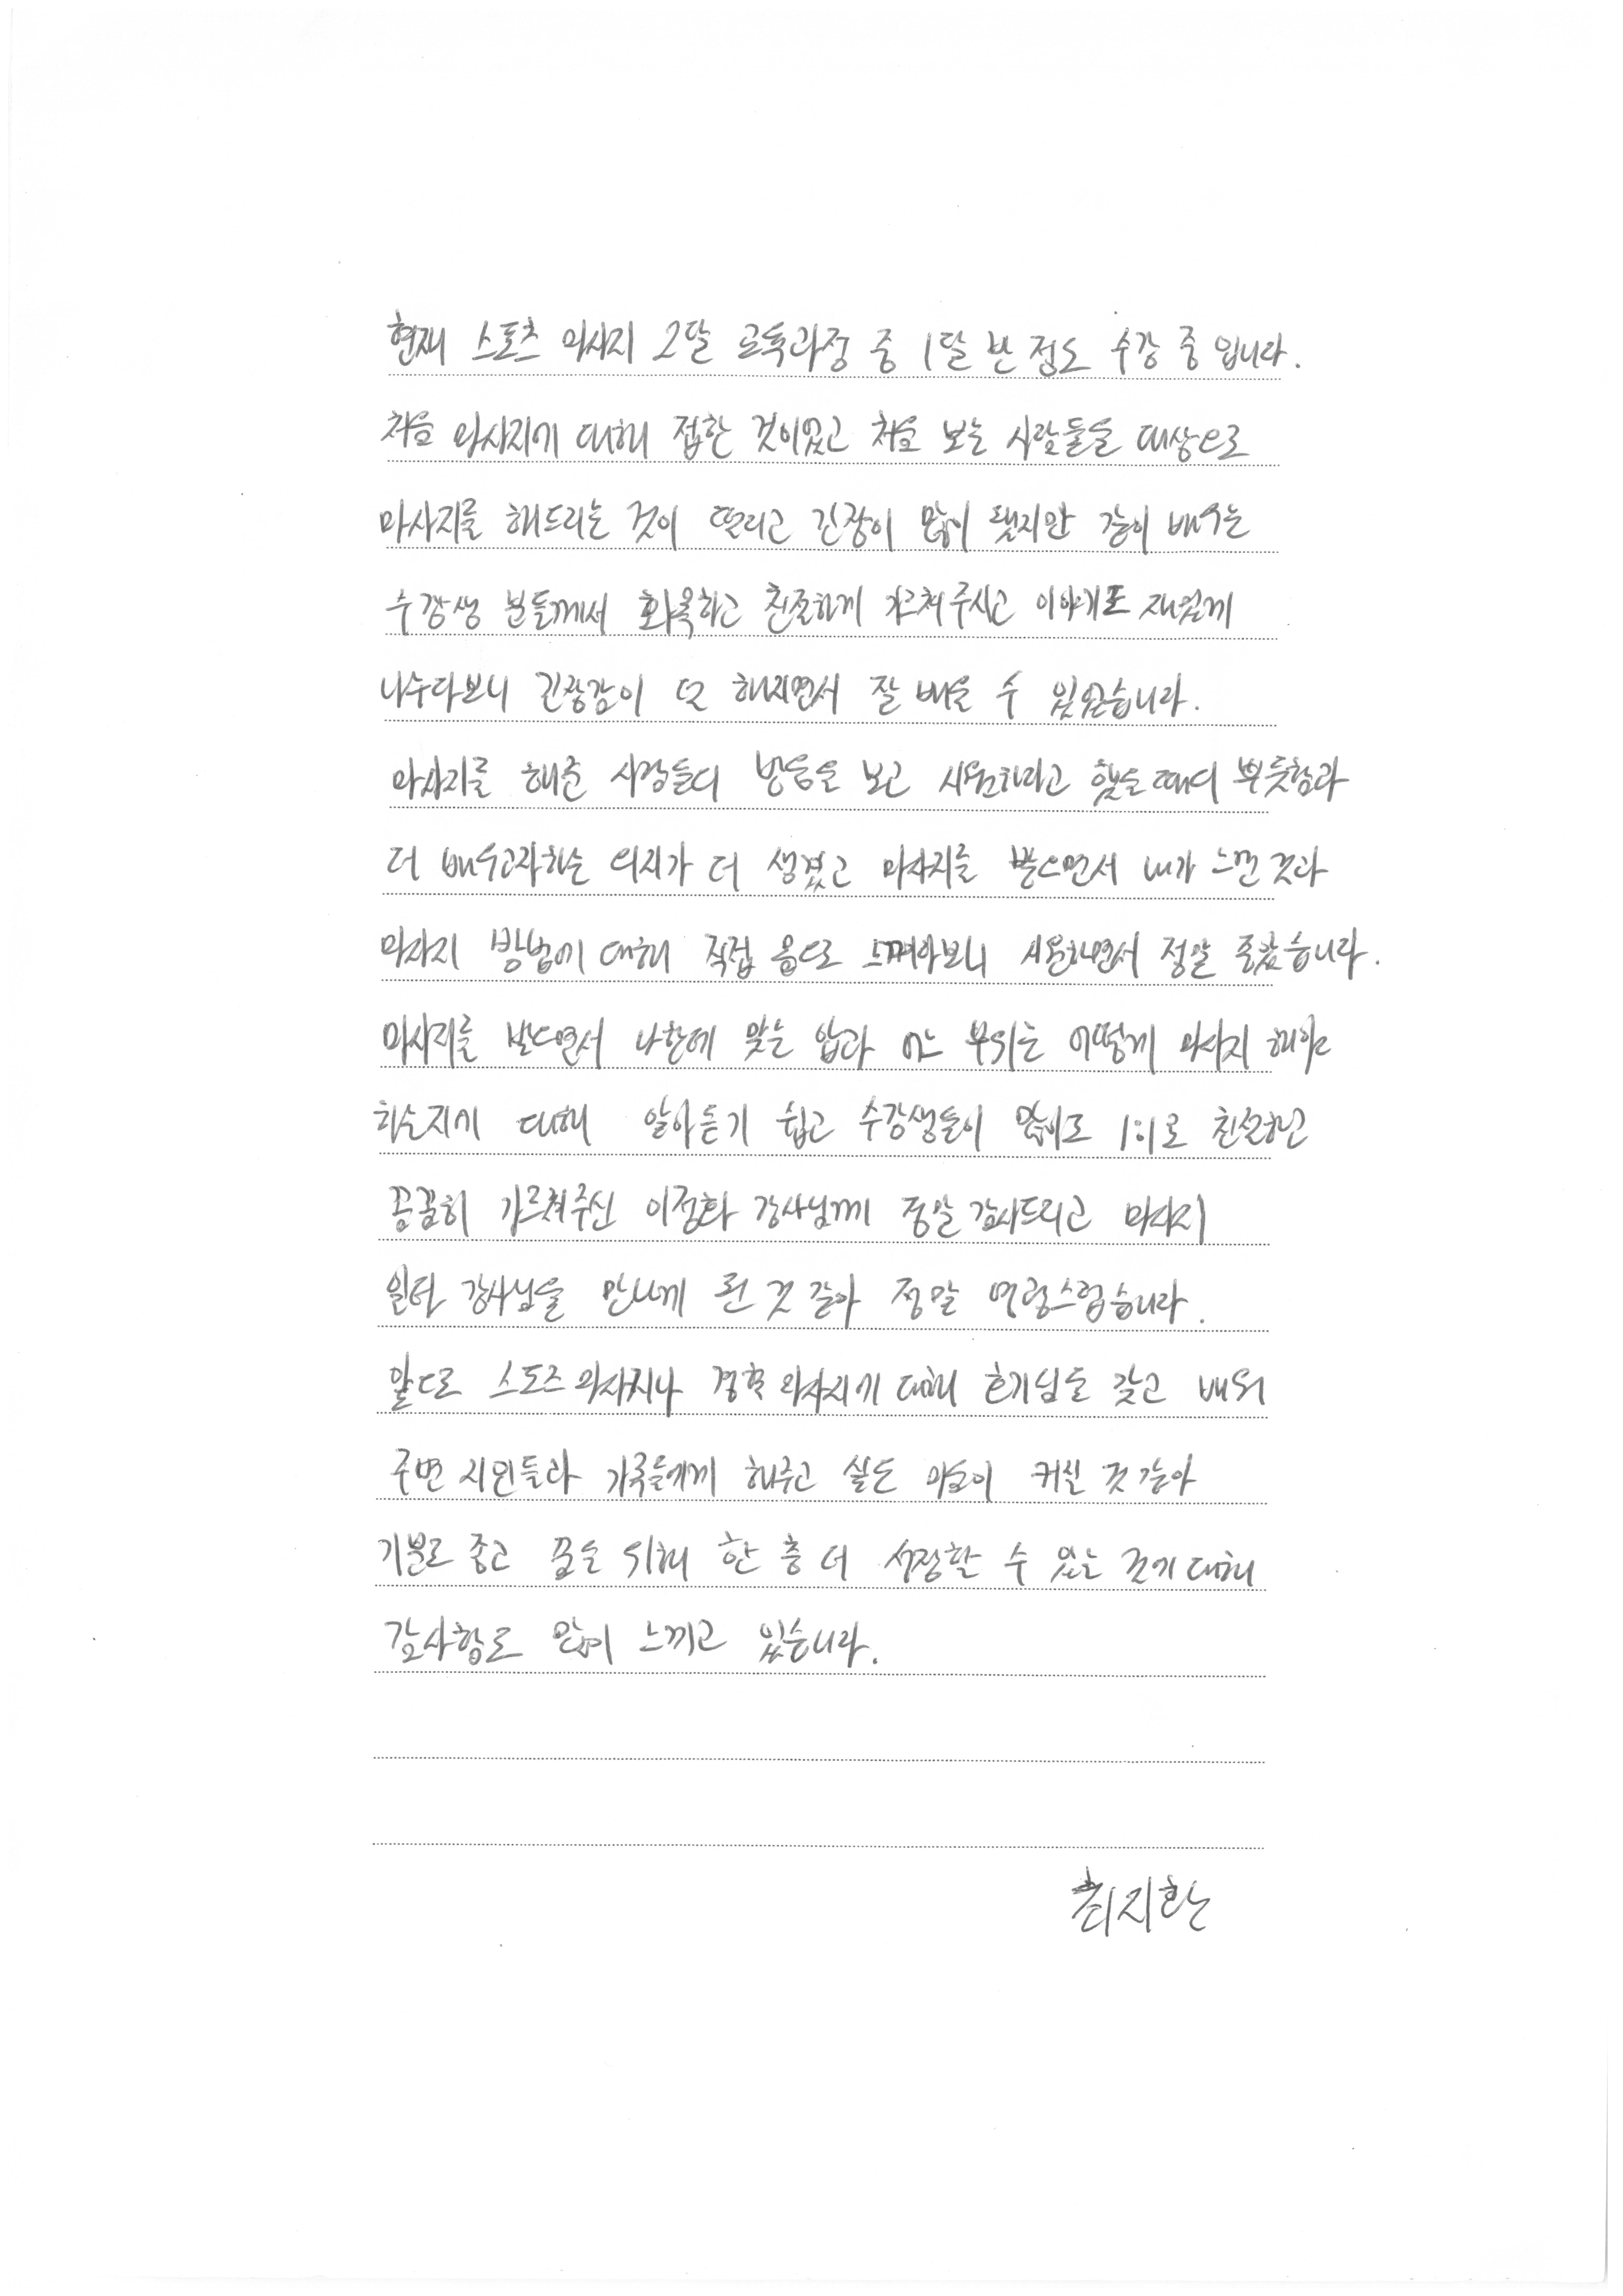 현재 스포츠 마사지 2달 교육과정 중 1달 반 정도 수강 중 입니다.
처음 마사지에 대해 접한 것이었고 처음 보는 사람들을 대상으로
마사지를 해드리는 것이 떨리고 긴장이 많이 됐지만 같이 배우는
수강생 분들께서 화목하고 친절하게 가르쳐주시고 이야기도 재밌게
나누다보니 긴장감이 덜 해지면서 잘 배울 수 있었습니다.
마사지를 해준 사람들의 반응을 보고 시원하다고 했을 때의 뿌듯함과
더 배우고자하는 의지가 더 생겼고 마사지를 받으면서 내가 느낀 것과
마사지 방법에 대해 직접 몸으로 느껴봐보니 시원하면서 정말 좋았습니다.
마사지를 받으면서 나한테 맞는 압과 어느 부위는 어떻게 마사지 해야
하는지에 대해 알아듣기 쉽고 수강생들이 많아도 1:1로 친절하고
꼼꼼히 가르쳐주신 이정화 강사님께 정말 감사드리고 마사지
일타 강사님을 만나게 된 것 같아 정말 영광스럽습니다.
앞으로 스포츠마사지나 경락마사지에 대해 흥미심을 갖고 배워
주변 지인들과 가족들에게 해주고 싶은 마음이 커진 것 같아
기분도 좋고 꿈을 위해 한 층 더 성장할 수 있는 것에 대해
감사함도 많이 느끼고 있습니다.
최지환